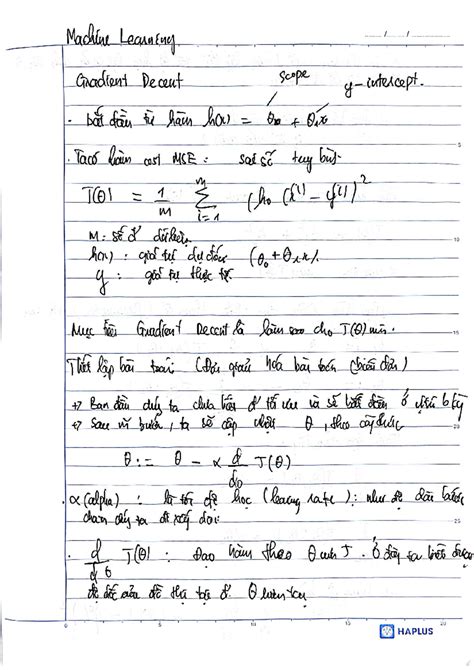 Machine Learning
Gradient Decent
scope
y-intercept.
. bắt đầu từ hàm h(x) = θ₀ + θ₁x
. Ta có hàm cost MSE : sai số
J(θ) = 1/m Σ (i=1 → m) (hθ (x⁽ⁱ⁾ - y⁽ⁱ⁾)²
m : số
h(x) : giá trị dự đoán (θ₀ + θ₁x).
y : giá trị thực tế.
Mục tiêu Gradient Decent là làm sao cho J(θ) min.
Thiết lập bài toán : (Đơn giản hóa bài toán
+> Ban đầu chúng ta chưa biết tối ưu và sẽ bắt đầu ở
+> Sau mỗi bước, ta sẽ cập nhật θ, theo công thức
θ := θ - α d/dθ J(θ)
. α (alpha) : là tốc độ học (learning rate) : như độ dài bước
chân chúng ta
. d/dθ J(θ) : Đạo hàm theo θ của J. Ở đây ta biết được
độ dốc của đồ thị tại θ hiện tại
HAPLUS